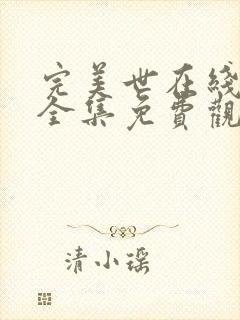 完美世在线
全集免費觀
清小瑶